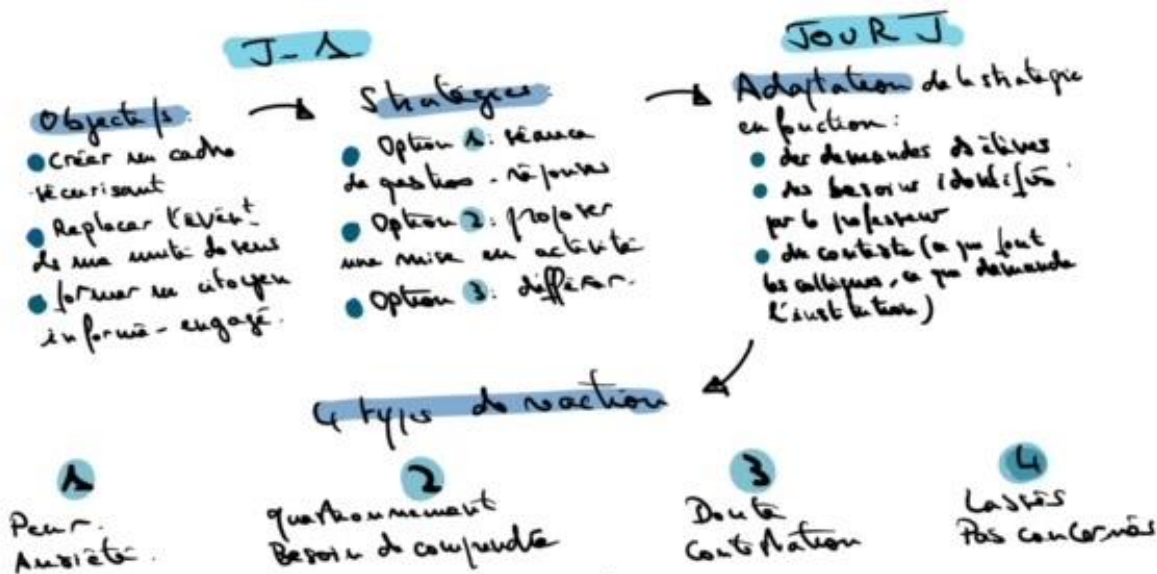 J-1
Objectifs:
● Créer un cadre
sécurisant
● Replacer l'évén^t
ds une unité de sens
● former un citoyen
informé - engagé.
Stratégies
● Option 1: séance
de questions - réponses
● Option 2: proposer
une mise en activité
● Option 3: différer.
JOUR J
Adaptation de la stratégie
en fonction:
● des demandes ds élèves
● des besoins identifiés
par le professeur
● du contexte (ce que font
les collègues, ce que demande
l'institution)
4 types de réaction
1
Peur.
Anxiété.
2
questionnement
Besoin de comprendre
3
Doute
Contestation
4
Lassés
Pas concernés